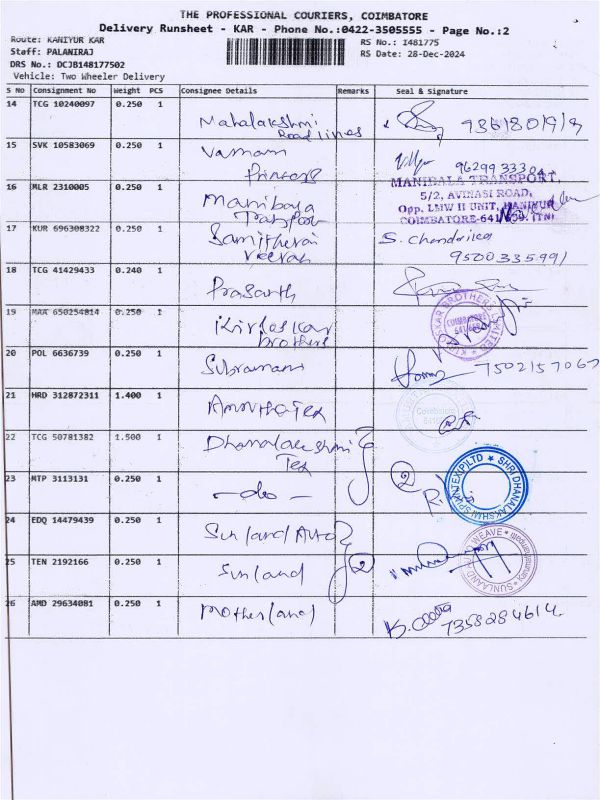 THE PROFESSIONAL COURIERS, COIMBATORE
Delivery Runsheet - KAR - Phone No.:0422-3505555 - Page No.:2
Route: KANIYUR KAR
RS No.: I481775
Staff: PALANIRAJ
RS Date: 28-Dec-2024
DRS No.: DCJB148177502
Vehicle: Two Wheeler Delivery
S No Consignment No Weight PCS Consignee Details Remarks Seal & Signature
14 TCG 10240097 0.250 1
Mahalakshmi
Road lines
15 SVK 10583069 0.250 1
16 MLR 2310005 0.250 1
MANIBALA TRANSPORT,
5/2, AVINASI ROAD,
Opp. LMW II UNIT, KANIYUR
17 KUR 696308322 0.250 1
S. Chandrika
9500335991
18 TCG 41429433 0.240 1
Prasanth
19 MAA 650254814 0.250 1
Kirloskar
brothers
COIMBATORE
20 POL 6636739 0.250 1
Subramani
7502157067
21 HRD 312872311 1.400 1
22 TCG 50781382 1.500
Dhanalakshmi
Tex
23 MTP 3113131 0.250 1
- do -
2
24 EDQ 14479439 0.250 1
Sunland Auto
25 TEN 2192166 0.250 1
Sunland
2
26 AMD 29634081 0.250 1
Motherland
7358284614